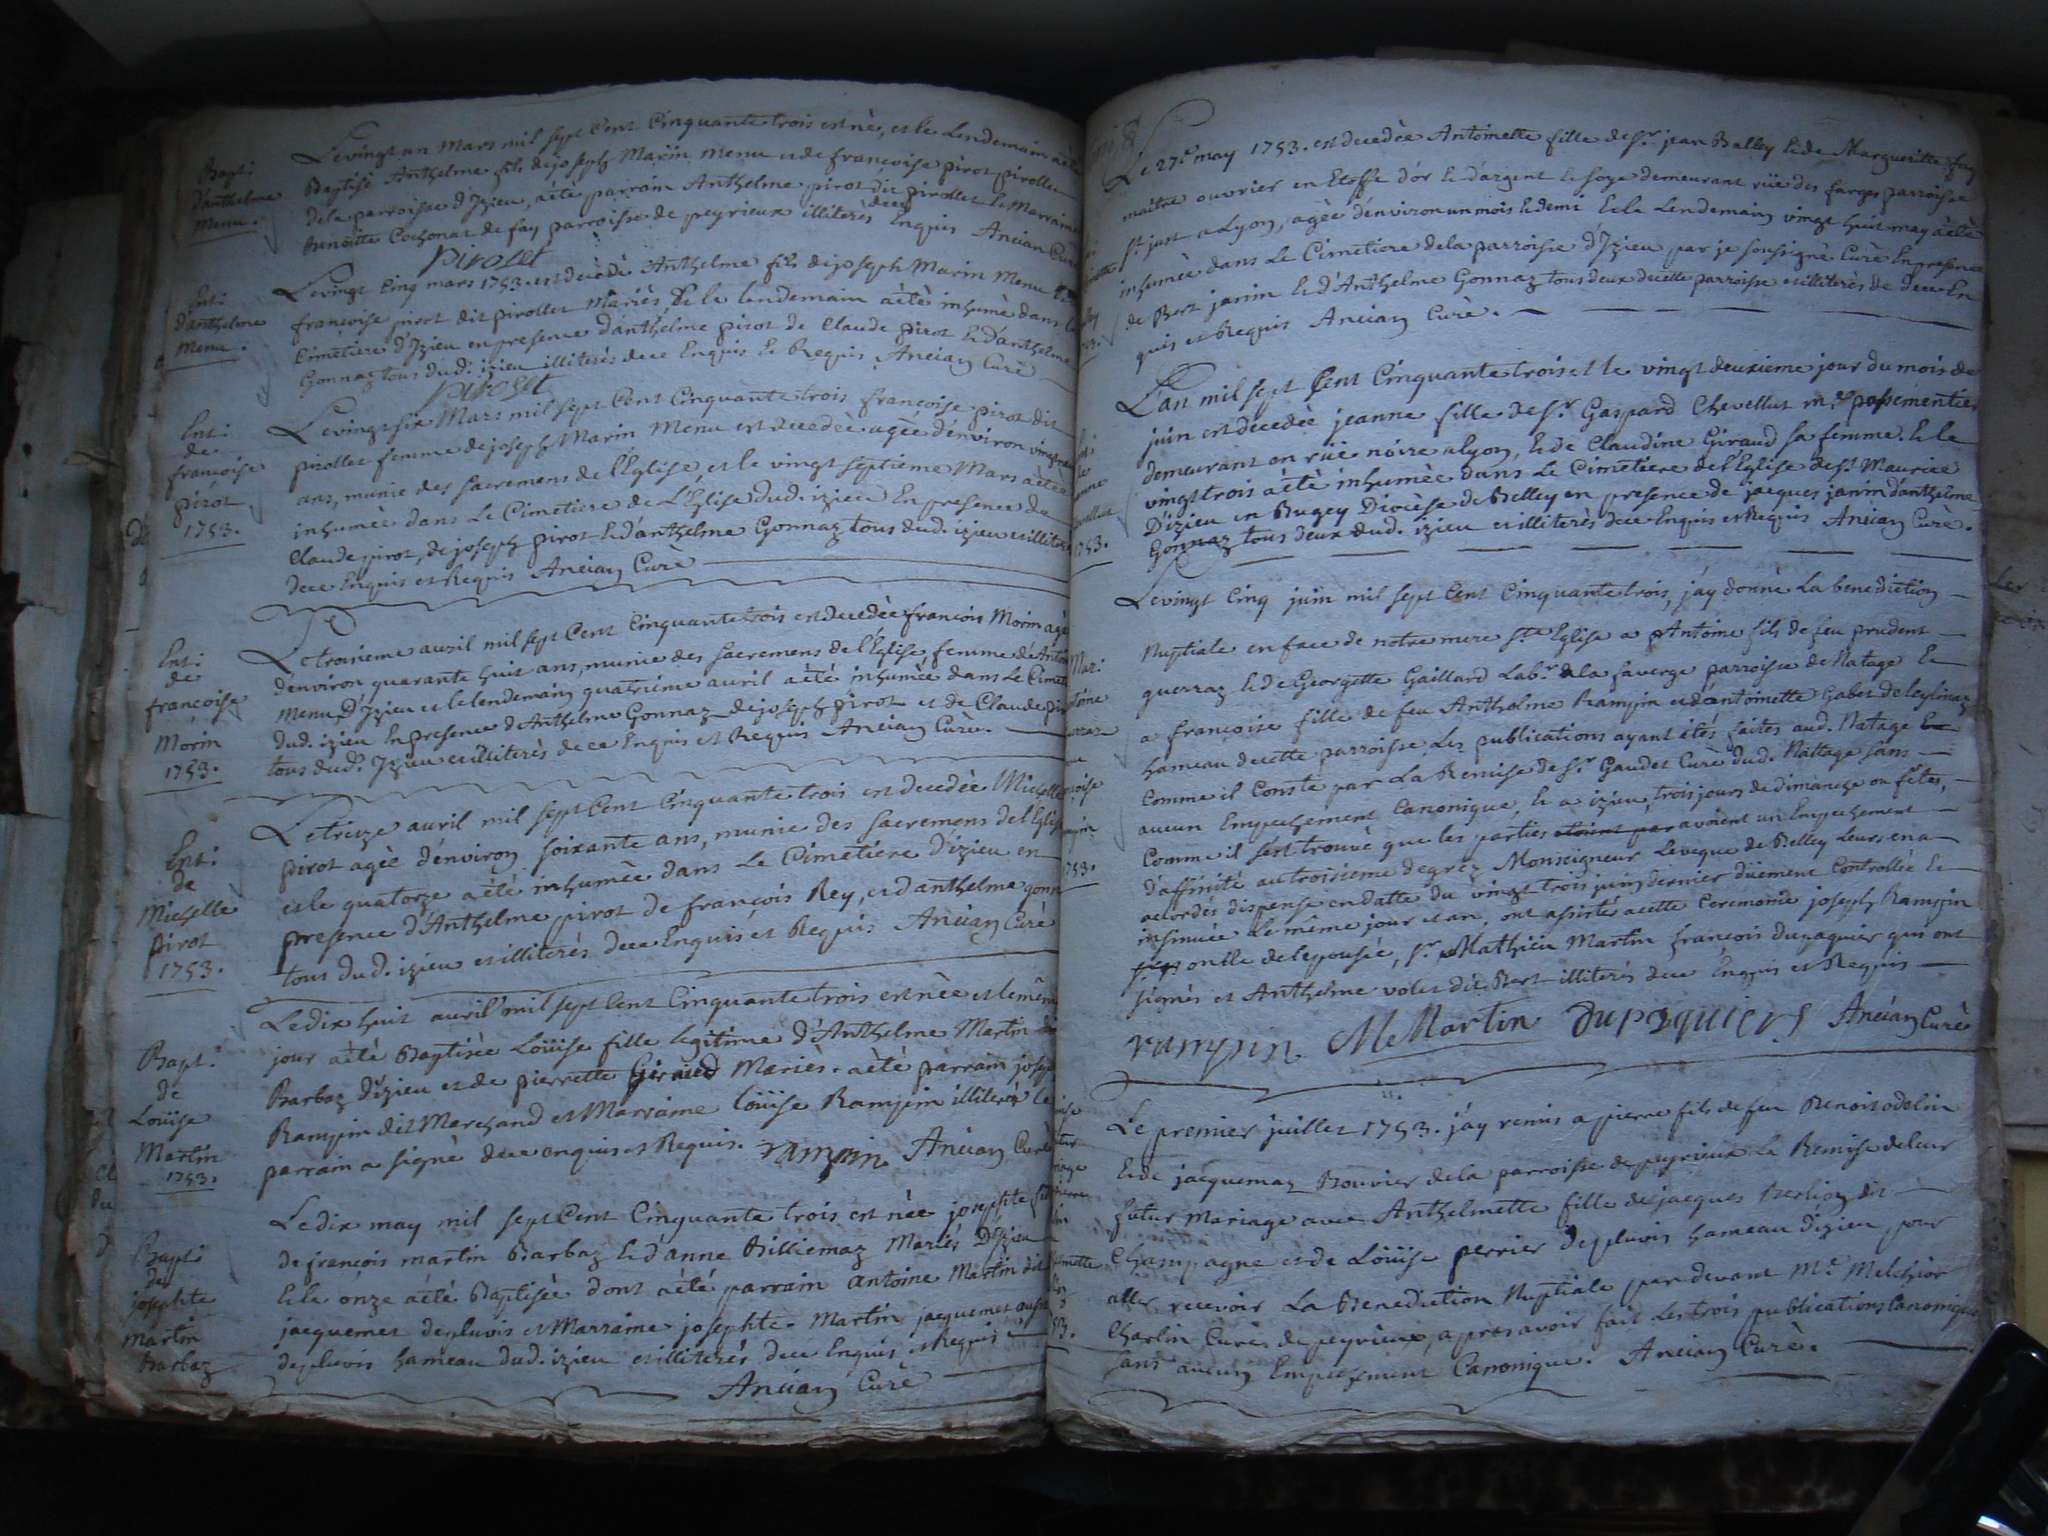 Bapt:
d'anthelme
Menu.
Le vingt un Mars mil sept Cent Cinquante trois est né, et le Lendemain a été
Baptisé Anthelme fils de joseph Marin Menu et de francoise pirot pirollet
de la parroisse d'Izieu, a été parrain Anthelme pirot dit pirollet et Marraine
Benoitte Cochonat de fay parroisse de peyrieux illiterés de ce Enquis Ancian Curé
Pirolet
Ent:
d'anthelme
Menu.
Le vingt Cinq mars 1753. est decedé Anthelme fils de joseph Marin Menu et de
francoise pirot dit pirollet Mariés & le lendemain a été inhumé dans le
Cimetiere d'Izieu en presence d'anthelme pirot de Claude pirot & d'anthelme
Gonnaz tous dud. izieu illiterés de ce Enquis & Requis Ancian Curé
pirolet
Ent:
de
francoise
pirot
1753.
Le vingt six Mars mil sept Cent Cinquante trois francoise pirot dit
pirollet femme de joseph Marin Menu est decedée agée d'environ vingt
ans, munie des sacremens de l'Eglise, et le vingt septieme Mars a été
inhumée dans Le Cimetiere de L'Eglise dud. izieu En presence de
Claude pirot, de joseph pirot & d'anthelme Gonnaz tous dud. izieu et illiterés
de ce Enquis et Requis Ancian Curé
Ent:
de
francoise
Morin
1753.
Le troisieme avril mil sept Cent Cinquante trois est decedée francoise Morin agée
d'environ quarante huit ans, munie des sacremens de l'Eglise femme d'Antoine
Menu d'Izieu et le lendemain quatrieme avril a été inhumée dans Le Cimetiere
dud. izieu En presence d'Anthelme Gonnaz de joseph pirot et de Claude pirot
tous dud. Izieu et illiterés de ce Enquis et Requis Ancian Curé.
Ent:
de
Michelle
pirot
1753.
Le treize avril mil sept Cent Cinquante trois est decedée Michelle
pirot agée d'environ soixante ans, munie des sacremens de l'Eglise
et le quatorze a été inhumée dans Le Cimetiere d'izieu en
presence d'Anthelme pirot de françois Rey, et d'anthelme gonnaz
tous dud. izieu et illiterés de ce Enquis et Requis Ancian Curé
Bapt:
de
Loüise
Martin
1753.
Le dix huit avril mil sept Cent Cinquante trois est née et le même
jour a été Baptisée Loüise fille legitime d'Anthelme Martin dit
Barbaz d'izieu et de pierrette Giraud Mariés. a été parrain joseph
Rampin dit Marchand et Marraine loüise Rampin illiterée le
parrain a signé de ce enquis et Requis. rampin Ancian Curé
Bapt:
de
josephte
Martin
Barbaz
Le dix may mil sept Cent Cinquante trois est née josephte fille
de francois martin Barbaz & d'anne Billiemaz Mariés d'Izieu
& le onze a été Baptisée dont a été parrain antoine Martin dit
jacquemet de pluvis et Marraine josephte Martin jacquemet aussi
de pluvis hameau dud. izieu et illiterés de ce Enquis et Requis
Ancian Curé
Le 27e may 1753. est decedée Antoinette fille de Sr jean Balley & de Margueritte fay
maitre ouvrier en Etoffe d'or & d'argent & soye demeurant rüe des farges parroisse
St just a Lyon, agée d'environ un mois & demi & le Lendemain vingt huit may a été
inhumée dans Le Cimetiere de la parroisse d'Izieu par je soussigné Curé En presence
de Bert janin & d'Anthelme Gonnaz tous deux de cette parroisse et illiterés de ce En
quis et Requis Ancian Curé.
L'an mil sept Cent Cinquante trois et le vingt deuxieme jour du mois de
juin est decedée jeanne fille de Sr Gaspard Chevellut me passementier
demeurant en rüe noire a Lyon, & de Claudine Giraud sa femme. & le
vingt trois a été inhumée dans Le Cimetiere de l'Eglise de St Maurice
D'izieu en Bugey Diocèse de Belley en presence de jacques janin d'anthelme
Gonnaz tous deux dud. izieu et illiterés de ce Enquis et Requis Ancian Curé.
1753.
Le vingt Cinq juin mil sept Cent Cinquante trois, j'ay donné La benediction
Nuptiale en face de notre mere Ste Eglise a Antoine fils de feu prudent
guerraz & de Georgette Gaillard Labr. de la faverge parroisse de Natage &
a françoise fille de feu Anthelme Rampin et d'antoinette Gabet de leylinaz
hameau de cette parroisse Les publications ayant étés faites aud. Natage
Comme il Conste par La Remise de Sr Gaudet Curé dud. Nattage sans
aucun Empechement Canonique, & a izieu, trois jours de dimanche ou fêtes,
Comme il s'est trouvé que les parties avoient un Empechement
d'affinité au troisieme degréz Monseigneur Leveque de Belley Leurs en a
accordés dispense en datte du vingt trois juin dernier düement Controllée &
insinuée Le même jour et an, ont assisté a cette Ceremonie joseph Rampin
oncle de l'epousée, Sr Mathieu Martin françois dupaquier qui ont
signés et Anthelme volet dit Bert illiterés de ce Enquis et Requis
rampin M Martin Dupaquiers Ancian Curé
Le premier juillet 1753. j'ay remis a pierre fils de feu Benoit odelin
& de jacquemaz Bouvier de la parroisse de peyrieux La Remise de leur
futur Mariage avec Anthelmette fille de jacques Berlioz dit
Champagne et de Loüise perrier de pluvis hameau d'izieu, pour
aller recevoir La Benediction Nuptiale par devant Mr Melchior
Charlin Curé de peyrieux, apres avoir fait Les trois publications Canoniques
sans aucun Empechement Canonique. Ancian Curé.